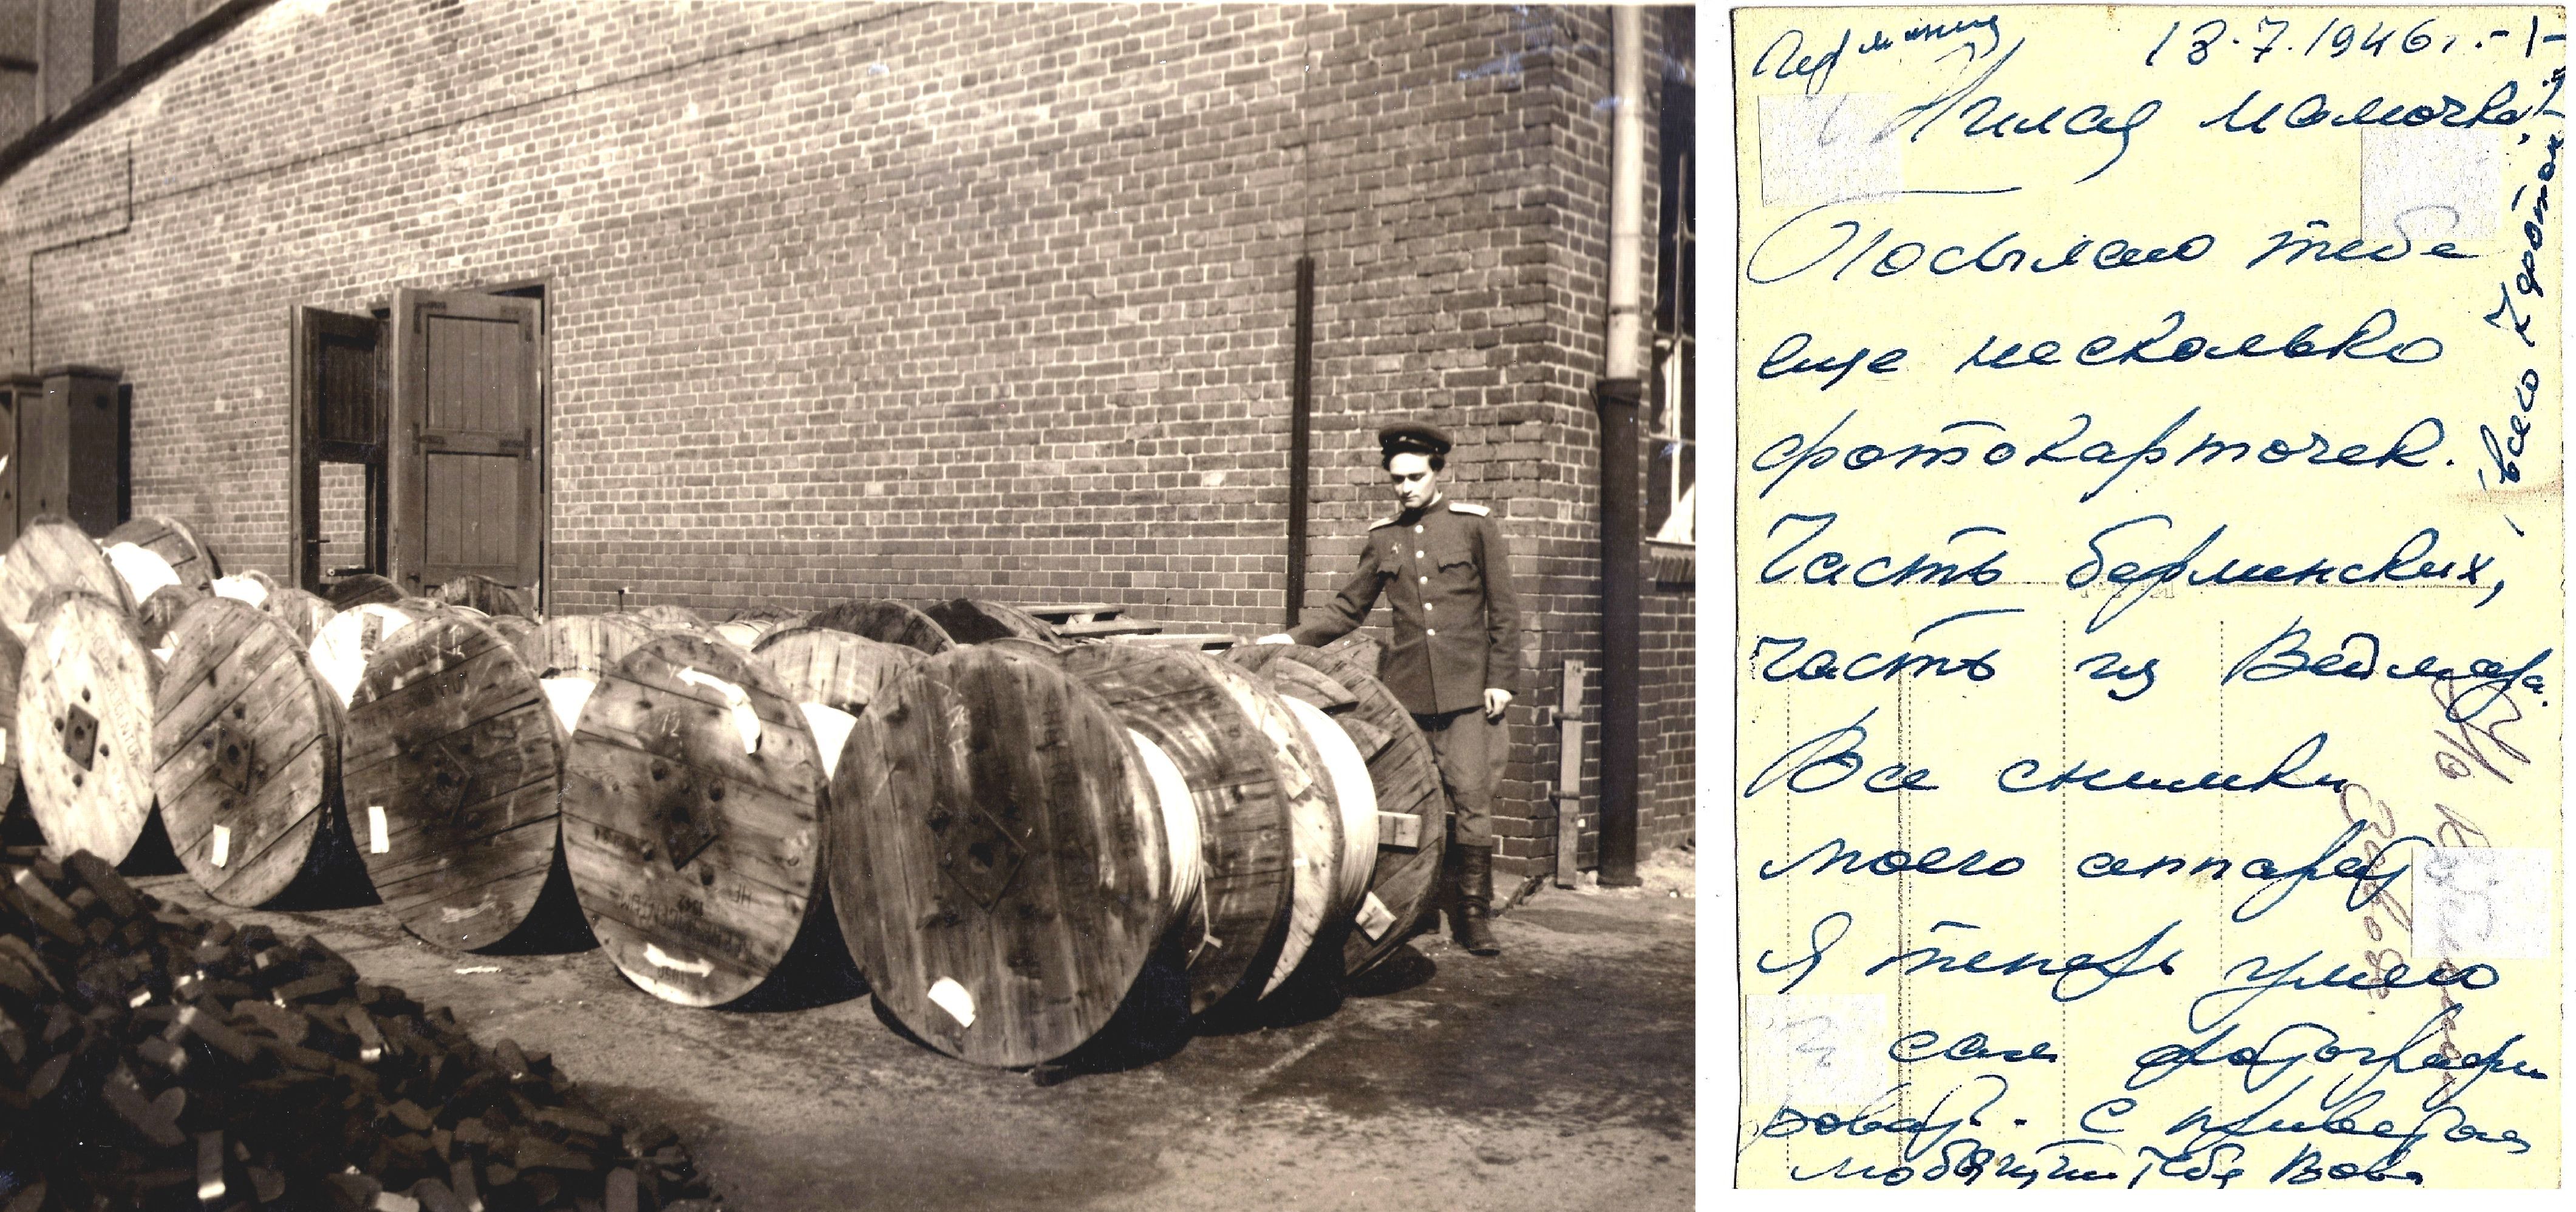 Германия 18.7.1946 г. -1-
Милая мамочка!
Посылаю тебе
еще несколько
фотокарточек.
Часть берлинских,
часть из Веймара.
Все снимки
моего аппарат
Я теперь умею
сам фотографи
ровать. С приветом
любящий тебя Вова
всего 7 фоток